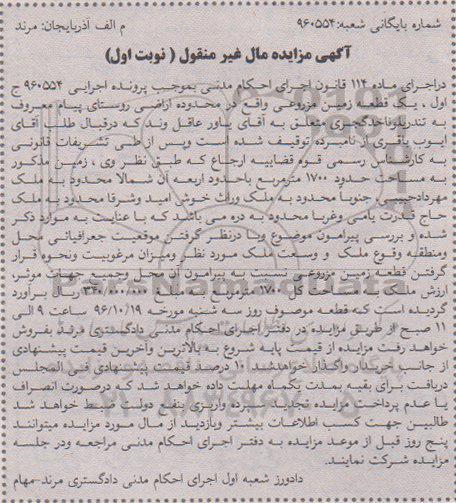 شماره بایگانی شعبه:۹۶۰۵۵۴ م الف آذربایجان: مرند
آگهی مزایده مال غیر منقول ( نوبت اول)
دراجرای ماده ۱۱۴ قانون اجرای احکام مدنی بموجب پرونده اجرائی ۹۶۰۵۵۴ ج
اول ، یک قطعه زمین مزروعی واقع در محدوده اراضی روستای پیام معروف
به تندره وناخدگیری متعلق به آقای یاور عاقل وند که درقبال طلب آقای
ایوب باقری از نامبرده توقیف شده است وپس از طی تشریفات قانونی
به کارشناس رسمی قوه قضاییه ارجاع که طبق نظر وی ، زمین مذکور
به مساحت حدود ۱۷۰۰ مترمربع باحدود اربعه آن شمالا محدود با ملک
مهردادحبیبی جنوباً محدود به ملک وراث خوش امید وشرقا محدود به ملک
حاج قدرت یامی وغربا محدود به دره می باشد که با عنایت به موارد ذکر
شده و بررسی پیرامون موضوع وبا درنظر گرفتن موقعیت جغرافیائی محل
ومنطقه وقوع ملک و وسعت ملک مورد نظر ومیزان مرغوبیت ونحوه قرار
گرفتن قطعه زمین مزروعی نسبت به پیرامون آن محل وجمیع جهات موثر،
ارزش ملک به مساحت کل ۱۷۰۰ مترمربع به مبلغ ریال برآورد
گردیده است که قطعه موصوف روز سه شنبه مورخه ۹۶/۱۰/۱۹ ساعت ۹ الی
۱۱ صبح از طریق مزایده در دفتر اجرای احکام مدنی دادگستری مرند بفروش
خواهد رفت مزایده از قیمت پایه شروع به بالاترین وآخرین قیمت پیشنهادی
از جانب خریدار واگذار خواهدشد ۱۰ درصد قیمت پیشنهادی فی المجلس
دریافت برای بقیه بمدت یکماه مهلت داده خواهد شد که درصورت انصراف
یا عدم پرداخت مزایده تجدید وسپرده واریزی بنفع دولت ضبط خواهد شد
طالبین جهت کسب اطلاعات بیشتر وبازدید از مال مورد مزایده میتوانند
پنج روز قبل از موعد مزایده به دفتر اجرای احکام مدنی مراجعه ودر جلسه
مزایده شرکت نمایند.
دادورز شعبه اول اجرای احکام مدنی دادگستری مرند-مهام
ParsNamadData